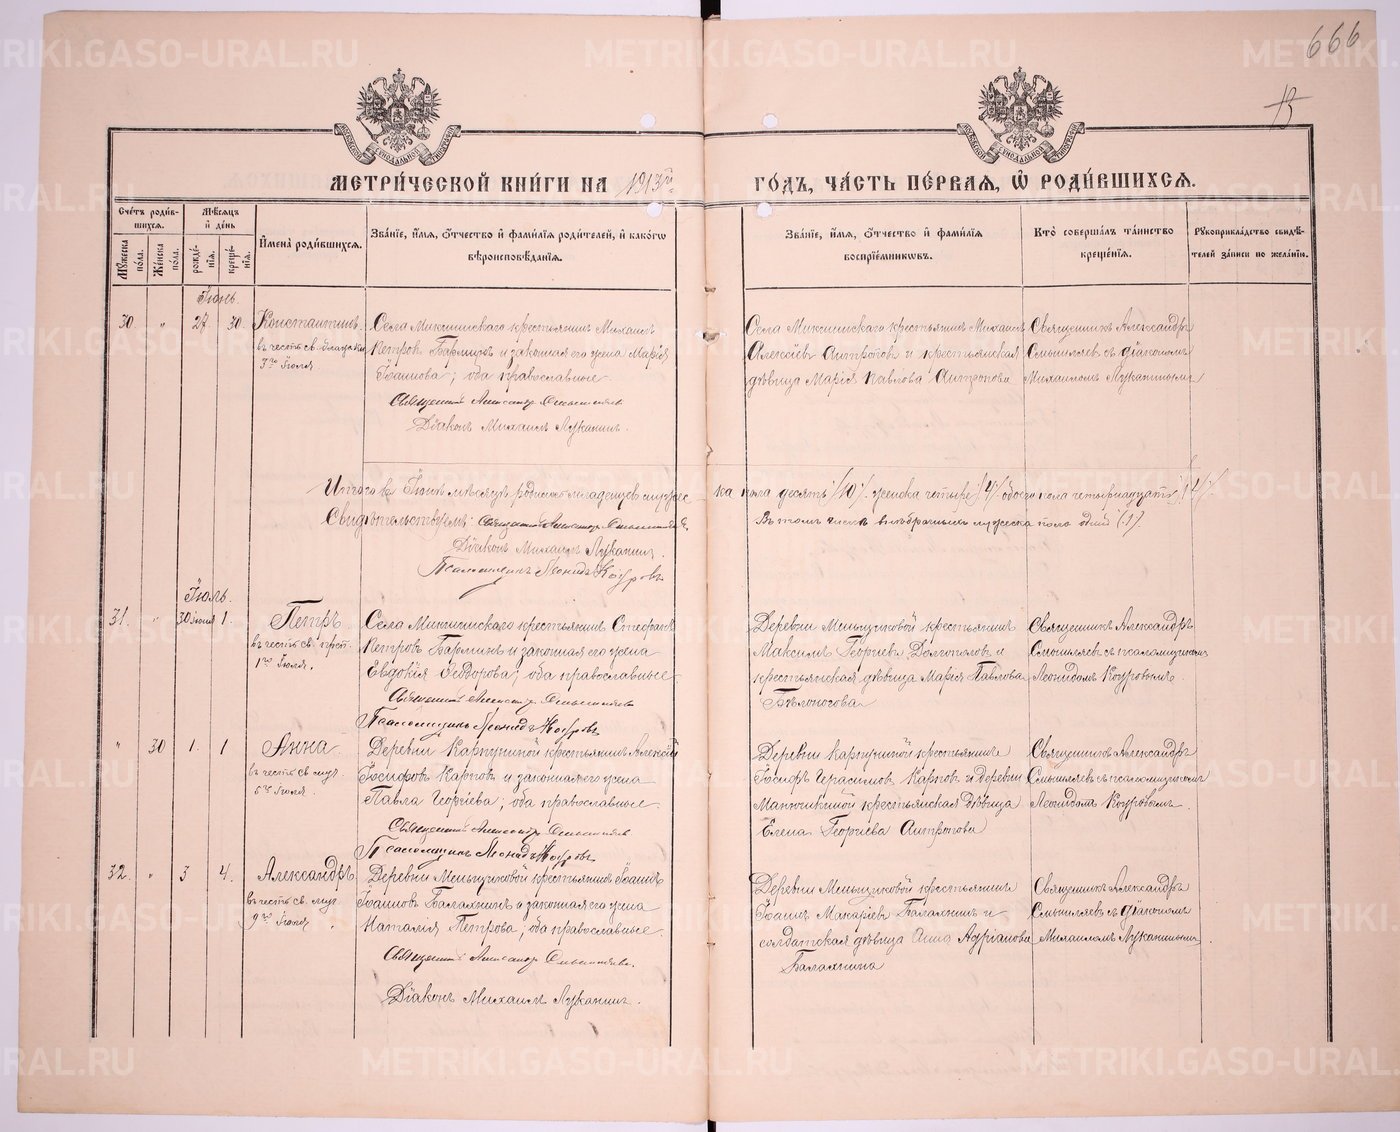 666
13
МЕТРИ́ЧЕСКОЙ КНИ́ГИ НА 1913й ГО́ДЪ, ЧА́СТЬ ПЕ́РВАЯ, Ѿ РОДИ́ВШИХСЯ.
Сче́тъ роди́вшихся.
Мужеска по́ла.
Же́нска по́ла.
Мѣ́сяцъ и̂ де́нь
рожде́нїя.
креще́нїя.
И̂мена̀ роди́вшихся.
Зва́нїе, и̂́мя, ѻ҆́тчество и̂ фами́лїя роди́телей, и̂ како́гѡ вѣроисповѣ́данїя.
Зва́нїе, и̂́мя, ѻ҆́тчество и̂ фами́лїя воспрїе́мниковъ.
Кто̀ соверша́лъ та́инство креще́нїя.
Рꙋкоприкла́дство свидѣ́телей за́писи по жела́нїю.
Іюнь.
30. " 27. 30.
Константинъ
въ честь св.
3го Іюля
Села Микшинскаго крестьянинъ Михаилъ
Петровъ Барминъ и законная его жена Марія
Іоаннова; оба православные
Священникъ Александръ Смышляевъ
Діаконъ Михаилъ Луканинъ.
Села Микшинскаго крестьянинъ Михаилъ
Алексіевъ Антроповъ и крестьянская
дѣвица Марія Павлова Антропова
Священникъ Александръ
Смышляевъ съ діакономъ
Михаиломъ Луканинымъ
Итого въ Іюнѣ мѣсяцѣ родилось младенцевъ мужеска пола десять (10), женска четыре (4), обоего пола четырнадцать (14).
Въ томъ числѣ внѣбрачныхъ мужеска пола одинъ (1)
Свидѣтельствуемъ: Священникъ Александръ Смышляевъ
Діаконъ Михаилъ Луканинъ.
Псаломщикъ Леонидъ Коуровъ
Іюль.
31. " 30 іюня 1.
Петръ.
въ честь св. прест.
1го Іюля.
Села Микшинскаго крестьянинъ Стефанъ
Петровъ Барминъ и законная его жена
Евдокія Ѳеодорова; оба православные
Священникъ Александръ Смышляевъ
Псаломщикъ Леонидъ Коуровъ
Деревни Меньщиковой крестьянинъ
Максимъ Георгіевъ Долгополовъ и
крестьянская дѣвица Марія Павлова
Бѣлоногова
Священникъ Александръ
Смышляевъ съ псаломщикомъ
Леонидомъ Коуровымъ
" 30 1. 1
Анна
въ честь св. муч.
5го Іюля.
Деревни Карпуниной крестьянинъ Алексій
Іосифовъ Карповъ и законная его жена
Павла Георгіева; оба православные
Священникъ Александръ Смышляевъ
Псаломщикъ Леонидъ Коуровъ
Деревни Карпуниной крестьянинъ
Іосифъ Герасимовъ Карповъ и деревни
Манюшкиной крестьянская дѣвица
Елена Георгіева Антропова
Священникъ Александръ
Смышляевъ съ псаломщикомъ
Леонидомъ Коуровымъ.
32. " 3 4.
Александръ
въ честь св. муч.
9го Іюля
Деревни Меньщиковой крестьянинъ Іоаннъ
Іоанновъ Балахнинъ и законная его жена
Наталія Петрова; оба православные.
Священникъ Александръ Смышляевъ.
Діаконъ Михаилъ Луканинъ.
Деревни Меньщиковой крестьянинъ
Іоаннъ Макаріевъ Балахнинъ и
солдатская дѣвица Анна Адріанова
Балахнина
Священникъ Александръ
Смышляевъ съ діакономъ
Михаиломъ Луканинымъ
METRIKI.GASO-URAL.RU